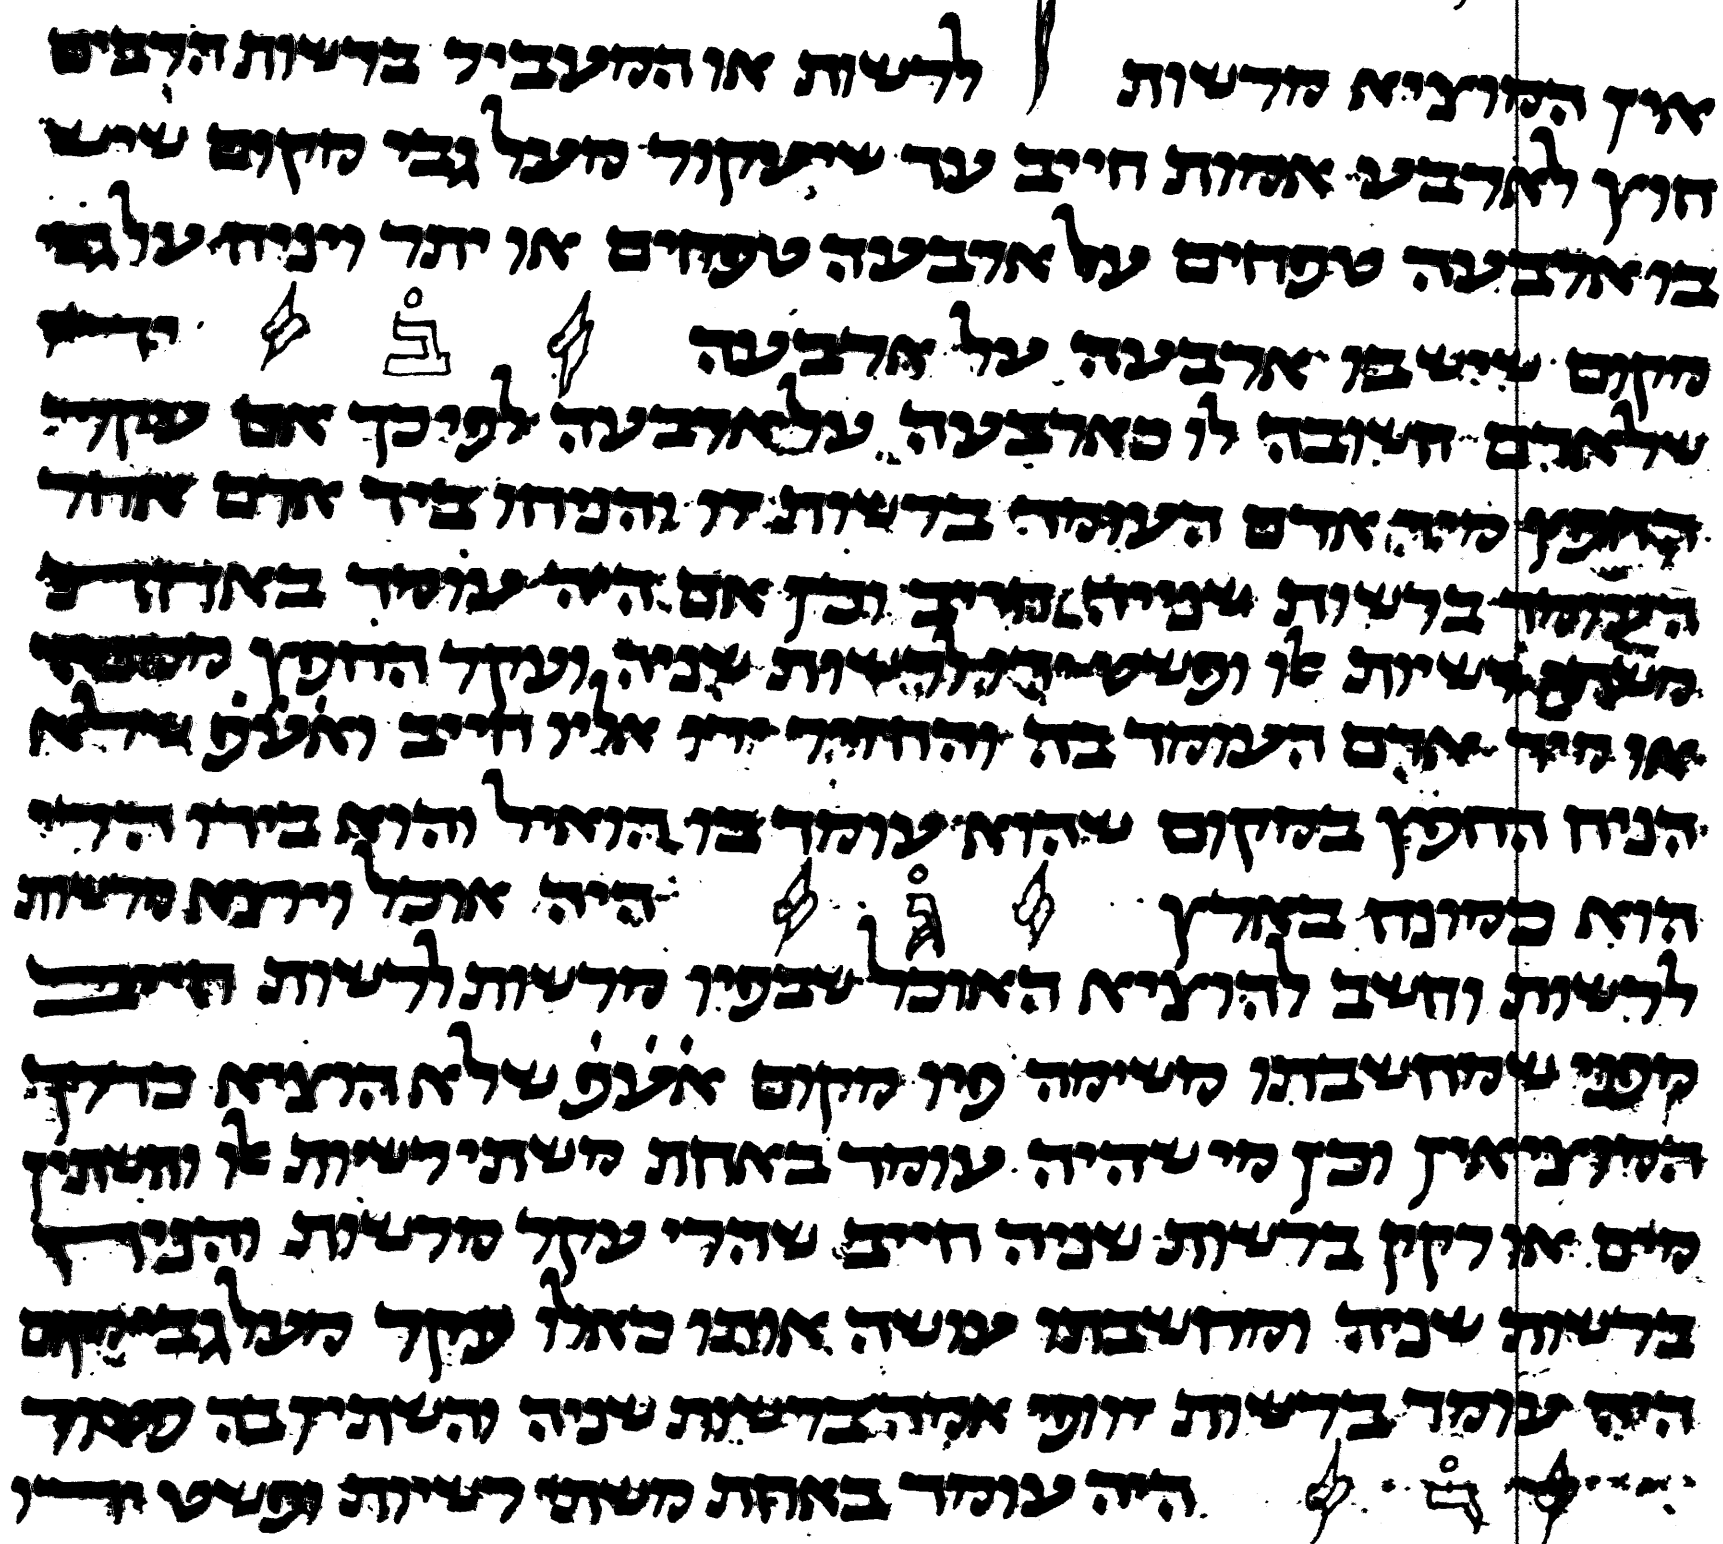 אין המוציא מרשות לרשות או המעביר ברשות הרבים
חוץ לארבע אמות חייב עד שיעקור מעל גבי מקום שיש
בו ארבעה טפחים על ארבעה טפחים או יתר ויניח על גבי
מקום שיש בו ארבעה על ארבעה ב ידו
שלאדם חשובה לו כארבעה על ארבעה לפיכך אם עקר
החפץ מיד אדם העומד ברשות זו והניחו ביד אדם אחר
העומד ברשות שנייה חייב וכן אם היה עומד באחת
משתי רשיות אלו ופשט ידו לרשות שניה ועקר החפץ ממנה
או מיד אדם העומד בה והחזיר ידו אליו חייב ואע׳פ׳ שלא
הניח החפץ במקום שהוא עומד בו הואיל והוא בידו הרי
הוא כמונח בארץ ג היה אוכל ויוצא מרשות
לרשות וחשב להוציא האוכל שבפיו מרשות לרשות חייב
מפני שמחשבתו משימה פיו מקום אע׳פ׳ שלא הוציא כדרך
המוציאין וכן מי שהיה עומד באחת משתי רשיות אלו והשתין
מים או רקק ברשות שניה חייב שהרי עקר מרשות והניח
ברשות שניה ומחשבתו עושה אותו כאלו עקר מעל גבי מקום
היה עומד ברשות זו ופי אמה ברשות שניה והשתין בה פטור
ד היה עומד באחת משתי רשיות ופשט ידו